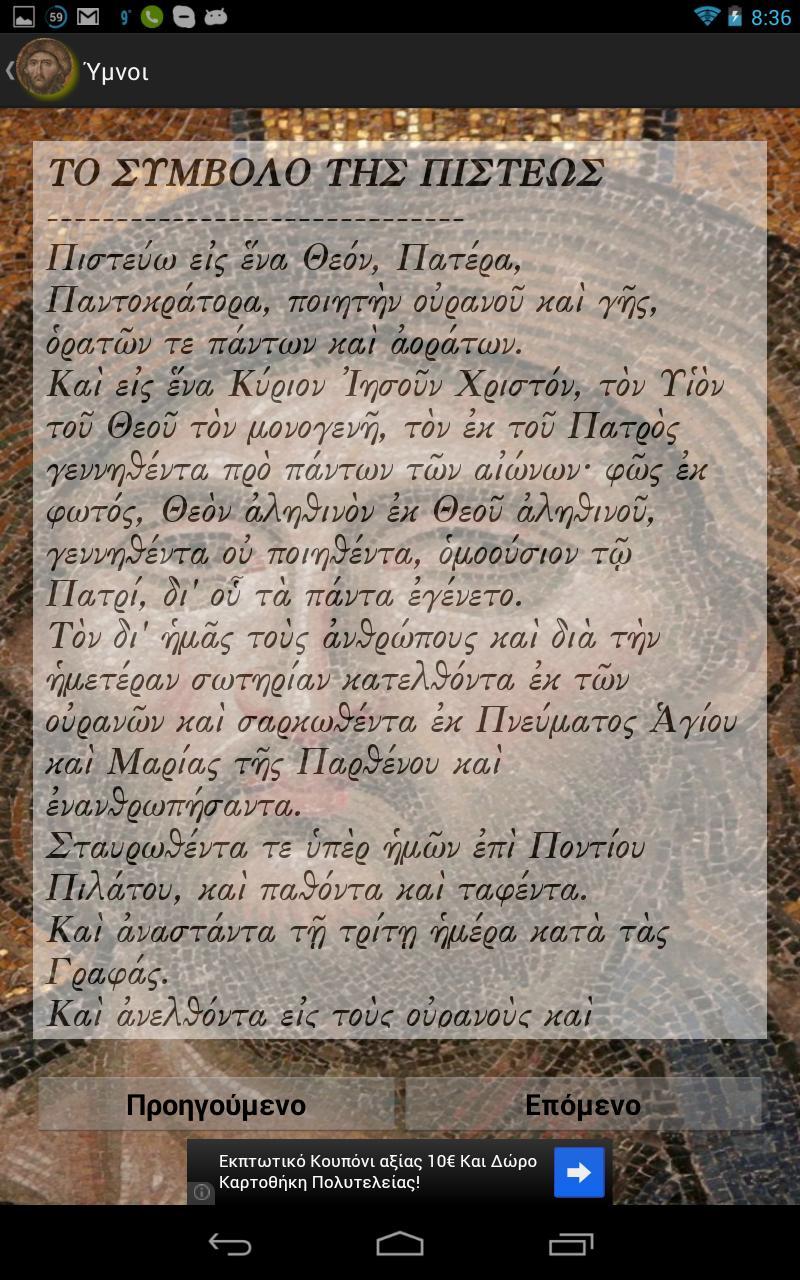 59
9°
8:36
Ύμνοι
ΤΟ ΣΥΜΒΟΛΟ ΤΗΣ ΠΙΣΤΕΩΣ
------------------------------
Πιστεύω εἰς ἕνα Θεόν, Πατέρα,
Παντοκράτορα, ποιητὴν οὐρανοῦ καὶ γῆς,
ὁρατῶν τε πάντων καὶ ἀοράτων.
Καὶ εἰς ἕνα Κύριον Ἰησοῦν Χριστόν, τὸν Υἱὸν
τοῦ Θεοῦ τὸν μονογενῆ, τὸν ἐκ τοῦ Πατρὸς
γεννηθέντα πρὸ πάντων τῶν αἰώνων· φῶς ἐκ
φωτός, Θεὸν ἀληθινὸν ἐκ Θεοῦ ἀληθινοῦ,
γεννηθέντα οὐ ποιηθέντα, ὁμοούσιον τῷ
Πατρί, δι' οὗ τὰ πάντα ἐγένετο.
Τὸν δι' ἡμᾶς τοὺς ἀνθρώπους καὶ διὰ τὴν
ἡμετέραν σωτηρίαν κατελθόντα ἐκ τῶν
οὐρανῶν καὶ σαρκωθέντα ἐκ Πνεύματος Ἁγίου
καὶ Μαρίας τῆς Παρθένου καὶ
ἐνανθρωπήσαντα.
Σταυρωθέντα τε ὑπὲρ ἡμῶν ἐπὶ Ποντίου
Πιλάτου, καὶ παθόντα καὶ ταφέντα.
Καὶ ἀναστάντα τῇ τρίτῃ ἡμέρα κατὰ τὰς
Γραφάς.
Καὶ ἀνελθόντα εἰς τοὺς οὐρανοὺς καὶ
Προηγούμενο Επόμενο
Εκπτωτικό Κουπόνι αξίας 10€ Και Δώρο
Καρτοθήκη Πολυτελείας!